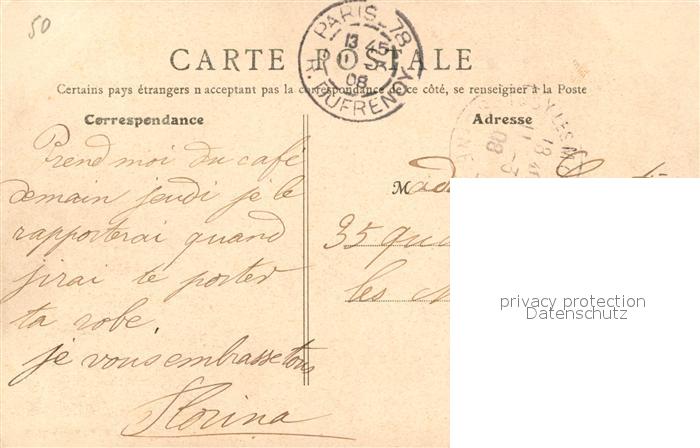 50
PARIS 78
13 45
08
R. DUFRENOY
CARTE POSTALE
Certains pays étrangers n acceptant pas la correspondance de ce côté, se renseigner à la Poste
Correspondance
Prend moi du café
demain jeudi je le
rapporterai quand
jirai te porter
ta robe.
je vous embrasse tous
Florina
Adresse
Mad
35 qu
les M
privacy protection
Datenschutz